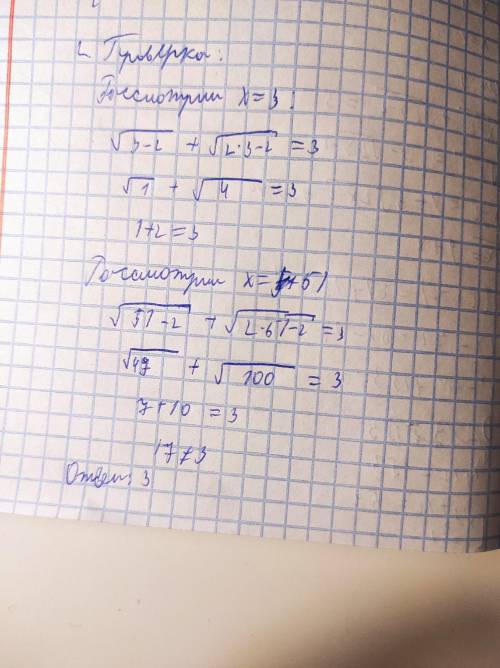 Проверка:
Рассмотрим x=3:
√3-2 + √2·3-2 = 3
√1 + √4 = 3
1+2=3
Россмотрим x= 51
√51-2 + √2·51-2 = 3
√49 + √100 = 3
7+10 = 3
17≠3
Ответ: 3